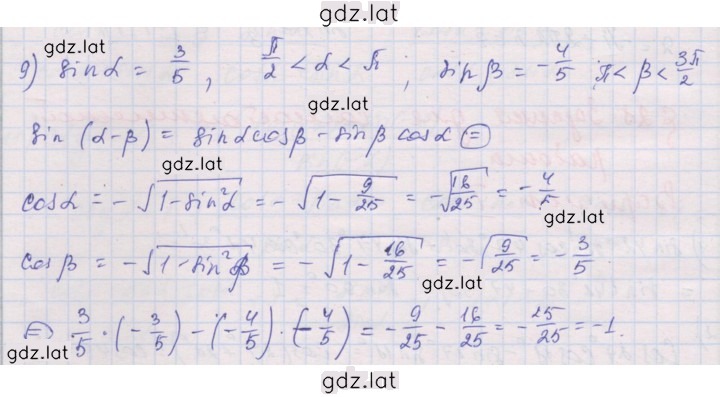 gdz.lat
9) sin α = 3/5, π/2 < α < π; sin β = -4/5 π < β < 3π/2
gdz.lat
gdz.lat
sin (α-β) = sin α cos β - sin β cos α (=)
gdz.lat
cos α = -√(1-sin²α) = -√(1 - 9/25) = -√(16/25) = -4/5
gdz.lat
cos β = -√(1-sin²β) = -√(1 - 16/25) = -√(9/25) = -3/5.
gdz.lat
(=) 3/5 · (-3/5) - (-4/5) · (-4/5) = -9/25 - 16/25 = -25/25 = -1.
gdz.lat
gdz.lat